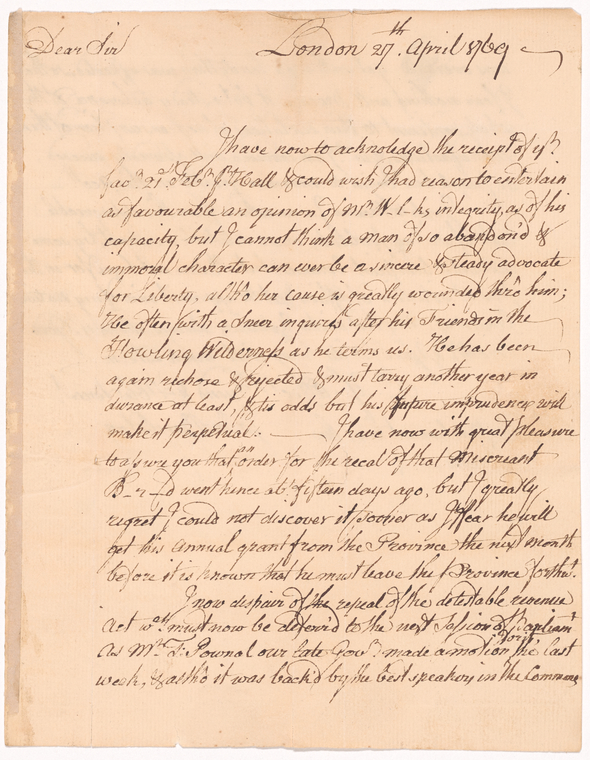 Dear Sir London 27.th April 1769
I have now to acknoledge the receipt of yr.
favr. 21st. Febr. pr. Hall & could wish I had reason to entertain
as favourable an opinion of Mr. W-l-ks integrity, as of his
capacity, but I cannot think a man of so abandon'd &
immoral character can ever be a sincere & steady advocate
for Liberty, altho' her cause is greatly wounded thro' him;
He often (with a sneer inquires after his Friends in the
Howling Wilderness as he terms us. He has been
again rechose & rejected & must tarry another year in
durance at least, & tis odds but his future imprudence will
make it perpetual. I have now with great pleasure
to assure you that an order for the recal of that Miscreant
B-r-d went hence abt. fifteen days ago, but I greatly
regret I could not discover it sooner as I fear he will
get his annual grant from the Province the next month
before it is known that he must leave the Province forthw.
I now despair of the repeal of the detestable revenue
act wch. must now be deferr'd to the next Session of Parliamt.
as Mr. T. Pownal our late Govr. made a motion for it, the last
week, & altho it was back'd by the best speakers in the Commons